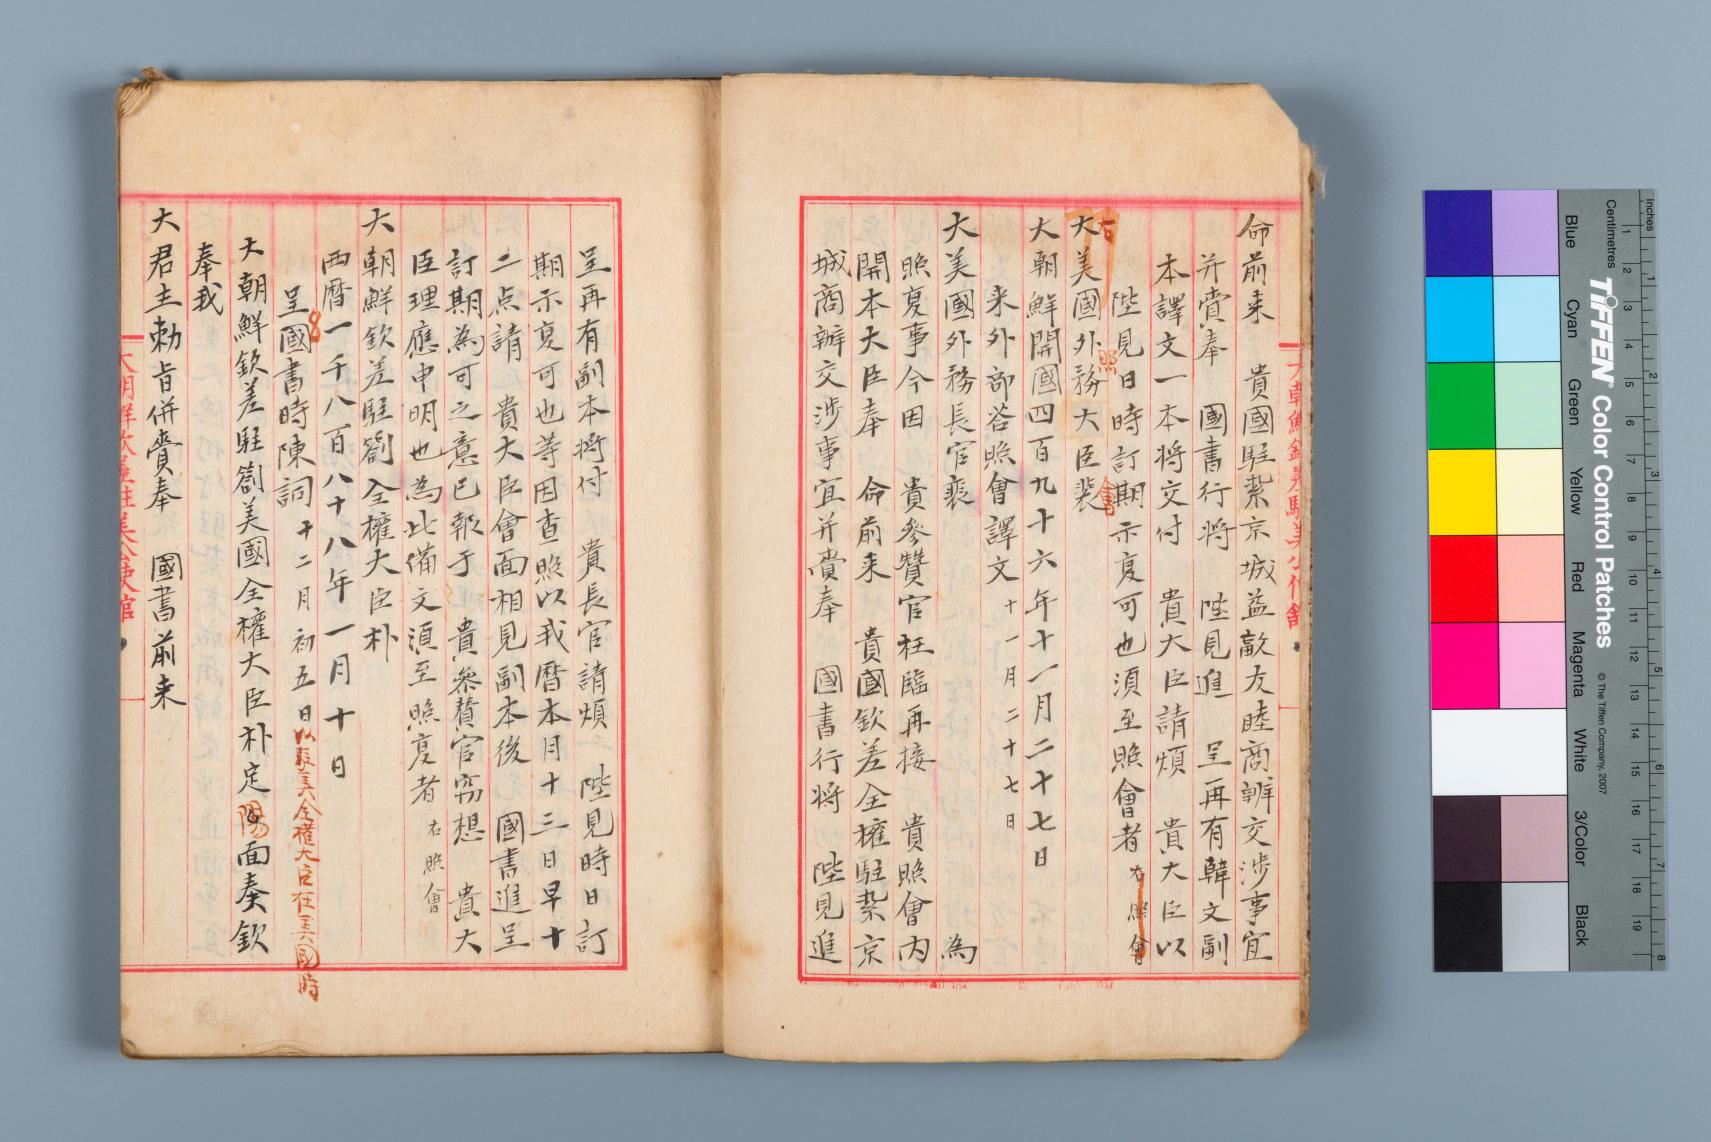 命前来　貴國駐紮京城益敵友睦商辦交涉事宜
并賫奉　國書行將　陛見進　呈再有韓文副
本譯文一本將交付　貴大臣請煩　貴大臣以
陛見日時訂期示复可也須至照會者 右照會
右照會
大美國外務大臣裴
大朝鮮開國四百九十六年十一月二十七日
来外部荅照會譯文 十一月二十七日
大美國外務長官裴　為
照复事今因　貴參贊官枉臨再接　貴照會内
開本大臣奉　命前来　貴國欽差全權駐紮京
城商辦交涉事宜并賫奉　國書行將　陛見進
呈再有副本將付　貴長官請煩　陛見時日訂
期示复可也等因查照以我曆本月十三日早十
二点請　貴大臣會面相見副本後　國書進呈
訂期為可之意已報于　貴參贊官窃想　貴大
臣理應申明也為此備文須至照复者 右照會
大朝鮮欽差駐劄全權大臣朴
西曆一千八百八十八年一月十日
呈國書時陳詞 十二月初五日 以駐美全權大臣在美國時
大朝鮮欽差駐劄美國全權大臣朴定陽面奏欽
奉我
大君主勅旨併賫奉　國書前来
大朝鮮欽差駐美公使館
Inches
Centimetres
1 2 3 4 5 6 7 8
1 2 3 4 5 6 7 8 9 10 11 12 13 14 15 16 17 18 19
TIFFEN® Color Control Patches
© The Tiffen Company, 2007
Blue
Cyan
Green
Yellow
Red
Magenta
White
3/Color
Black